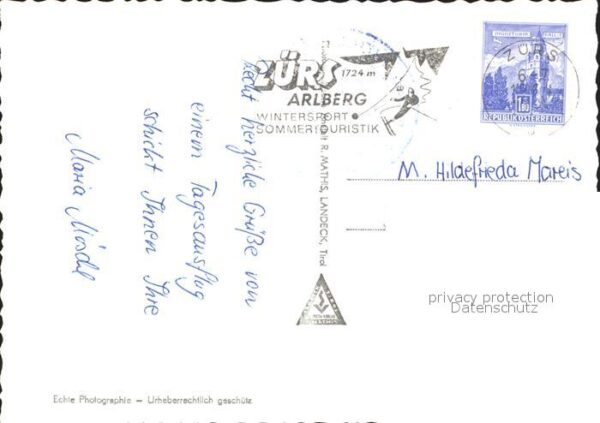 Recht herzliche Grüße von
einem Tagesausflug
schickt Ihnen Ihre
Maria
ZÜRS
1724 m
ARLBERG
WINTERSPORT
SOMMERTOURISTIK
R. MATHIS, LANDECK, Tirol
ZÜRS
MÜNZTURM HALL
1.50
REPUBLIK ÖSTERREICH
M. Hildefrieda Mareis
privacy protection
Datenschutz
Echte Photographie – Urheberrechtlich geschützt.